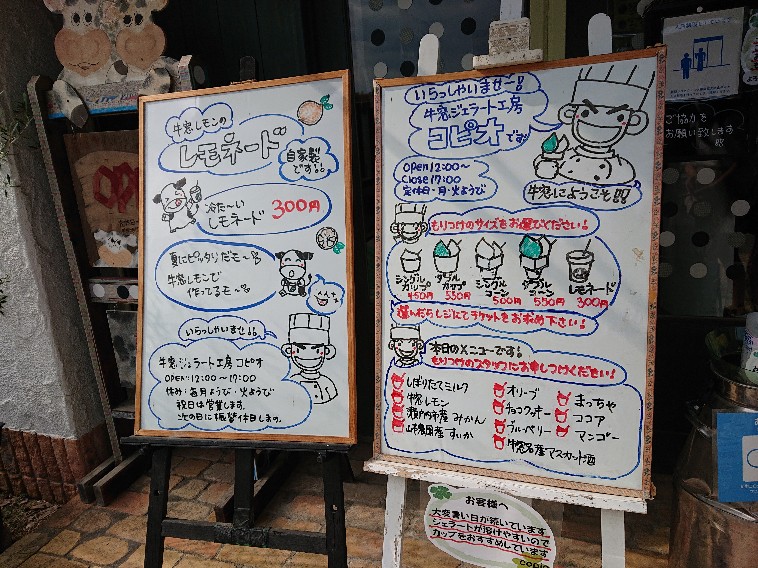 牛窓レモンの
レモネード
自家製
です!!
冷た〜い
レモネード 300円
夏にピッタリだモ〜!!
牛窓レモンで
作ってるモ〜
いらっしゃいませ!!
牛窓ジェラート工房 コピオ
OPEN:12:00〜17:00
休み:毎月ようび・火ようび
祝日は営業します。
次の日に振替休日します。
いらっしゃいませ〜!!
牛窓ジェラート工房
コピオです
OPEN 12:00〜
Close 17:00
定休日・月・火ようび
牛窓にようこそ!!
もりつけのサイズをお選びください!
シングル
カップ
450円
ダブル
カップ
550円
シングル
コーン
500円
ダブル
コーン
550円
レモネード
300円
選んだらレジにてチケットをお求め下さい!
本日のメニューです!
もりつけのスタッフにお申しつけください!
しぼりたてミルク
牛窓レモン
瀬戸内市産みかん
すいか
オリーブ
チョコクッキー
ブルーベリー
牛窓名産マスカット酒
まっちゃ
ココア
マンゴー
ご協力を
お願い致します
お客様へ
大変暑い日が続いています
ジェラートが溶けやすいので
カップをおすすめしています
copio